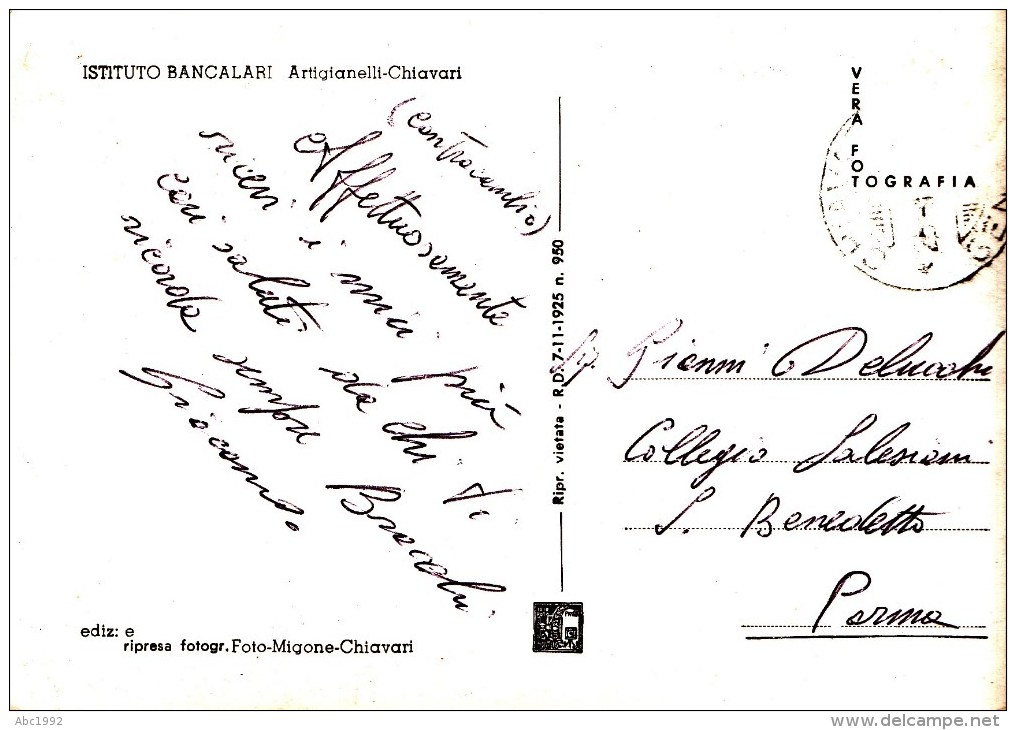 ISTITUTO BANCALARI Artigianelli-Chiavari
VERA FOTOGRAFIA
(contracambio)
Affettuosamente
ricevi i miei più
cari saluti da chi ti
ricorda sempre
Giacomo.
Sig. Gianni Delucchi
Collegio Salesiani
S. Benedetto
Parma
Ripr. vietata - R.D. 7-11-1925 n. 950
ediz: e
ripresa fotogr. Foto-Migone-Chiavari
Abc1992
delcampe.net